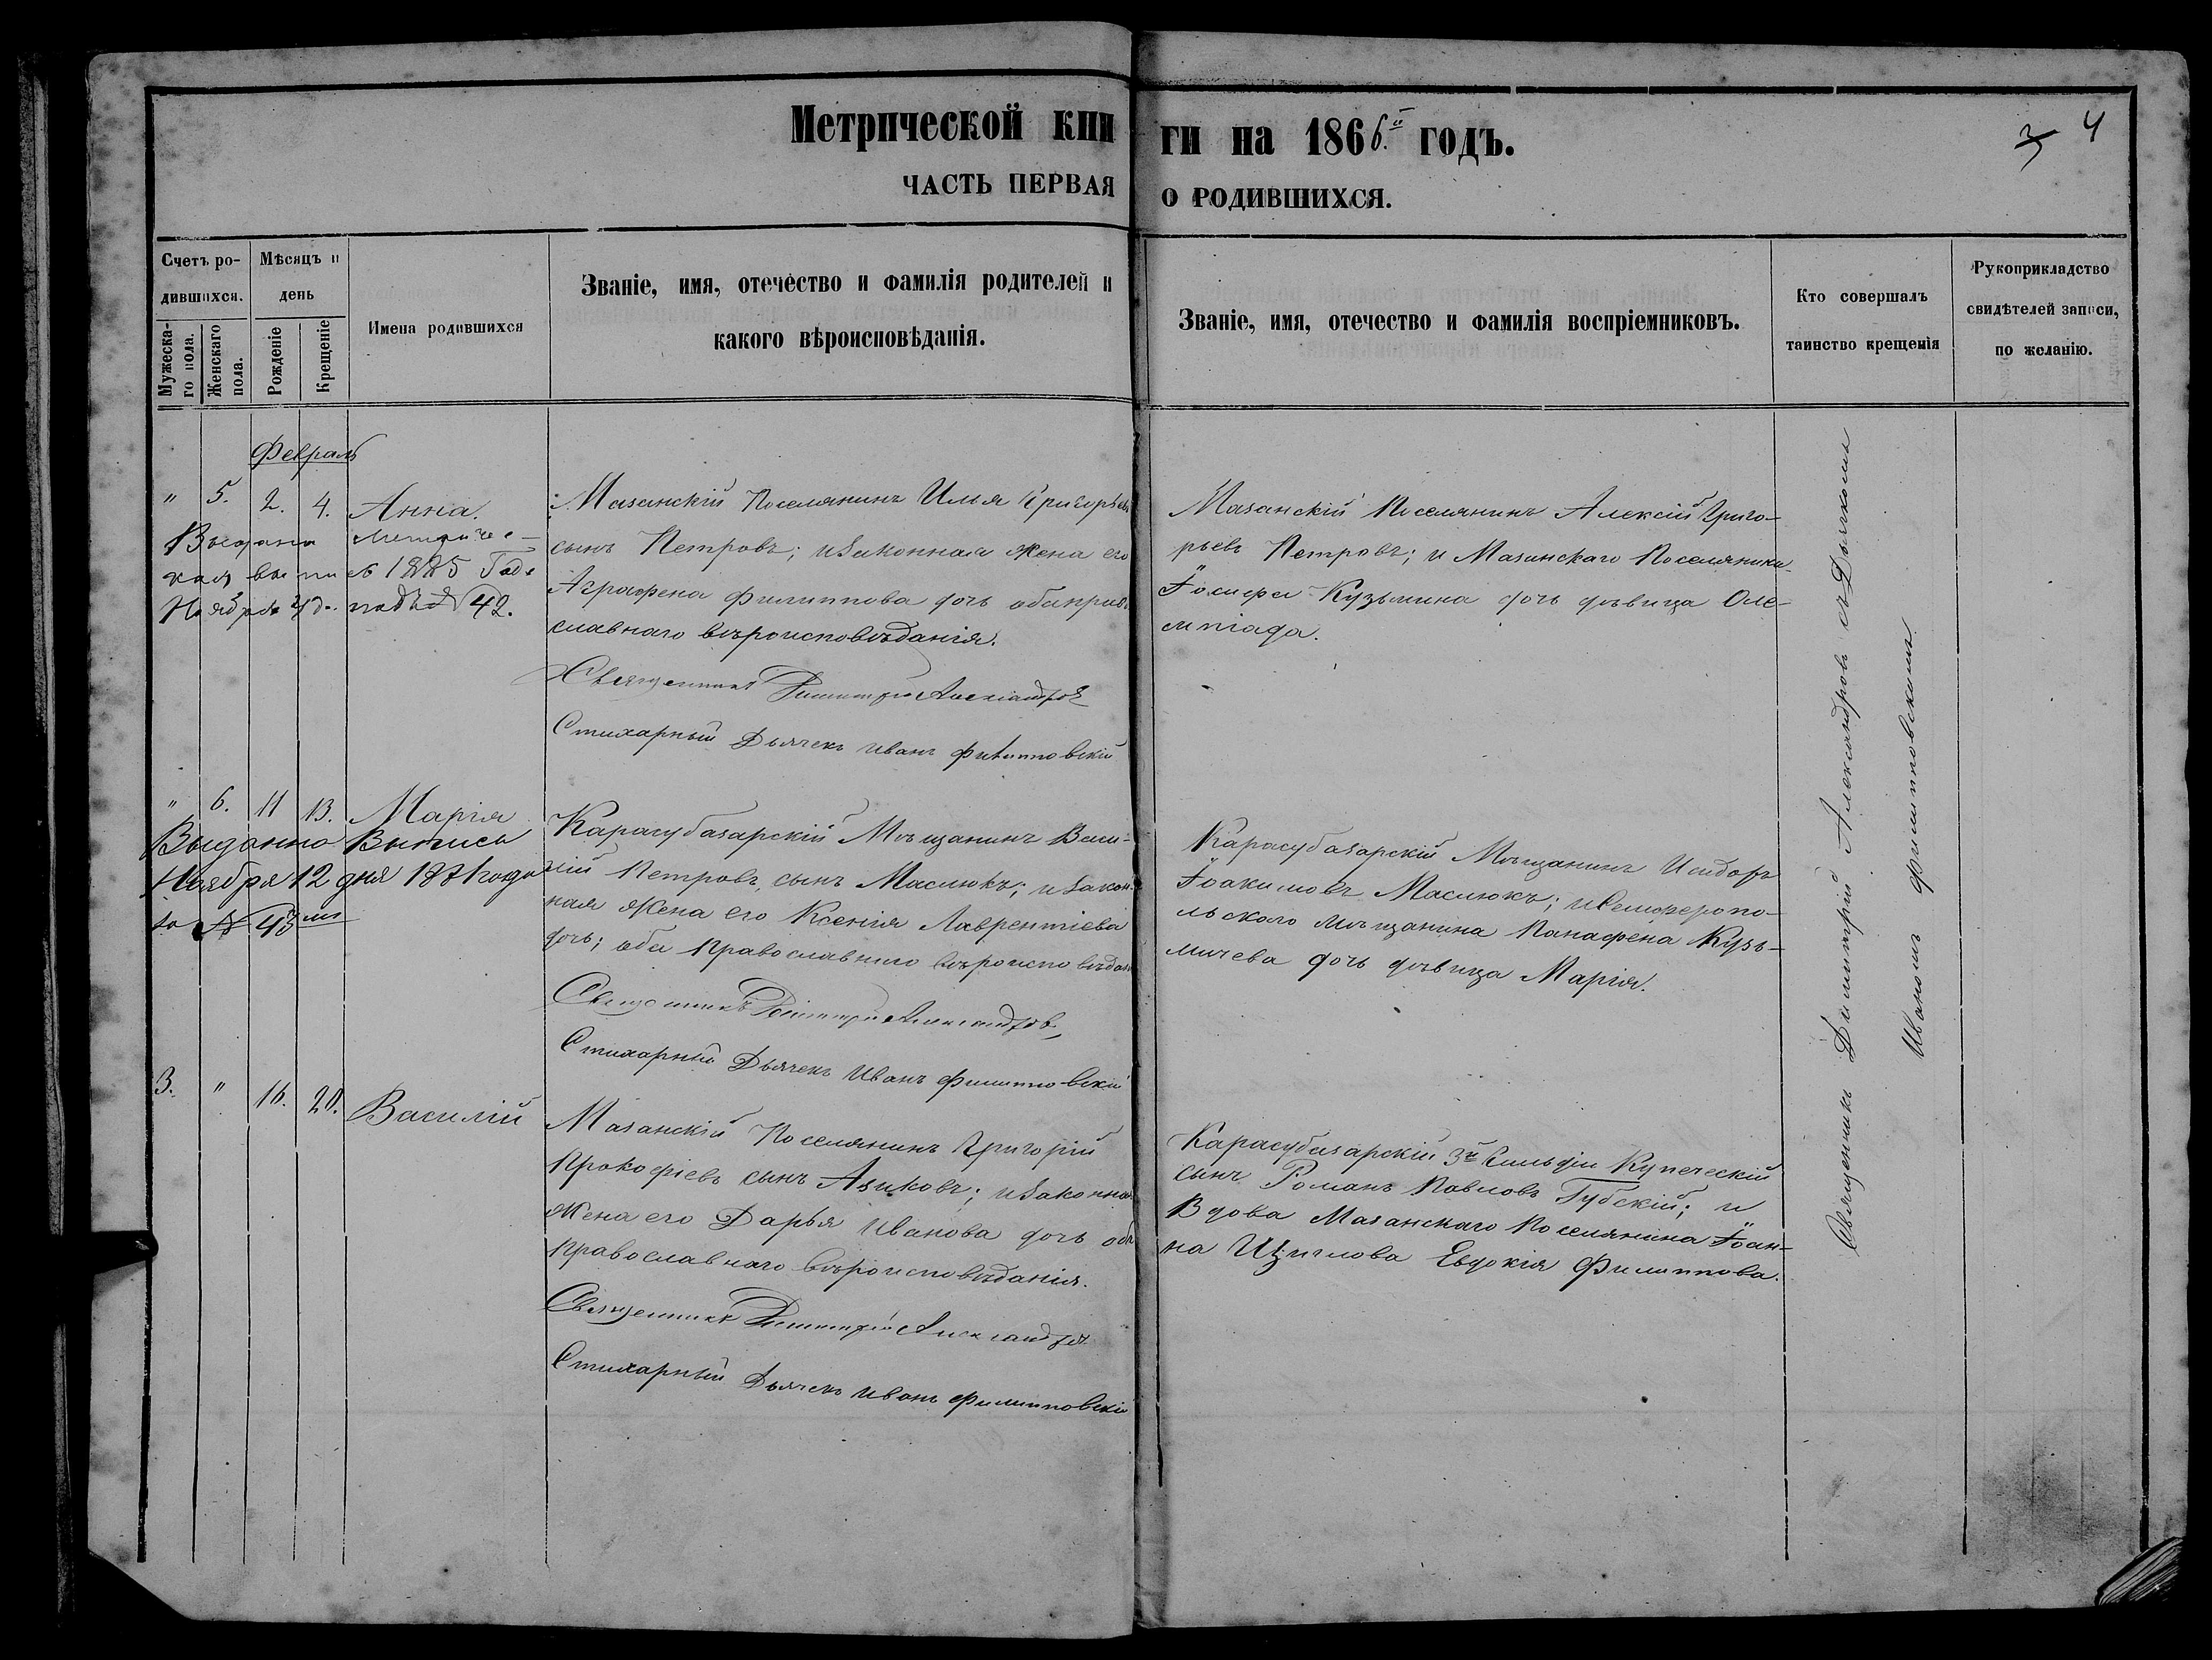 Метрической кни
ги на 1866.й годъ.
3 4
ЧАСТЬ ПЕРВАЯ
О РОДИВШИХСЯ.
Счетъ ро-
дившихся.
Мужеска-
го пола.
Женскаго
пола.
Мѣсяцъ и
день
Рожденіе
Крещеніе
Имена родившихся
Званіе, имя, отечество и фамилія родителей и
какого вѣроисповѣданія.
Званіе, имя, отечество и фамилія воспріемниковъ.
Кто совершалъ
таинство крещенія
Рукоприкладство
свидѣтелей записи,
по желанію.
Февраль
" 5. 2. 4. Анна.
Выдана метричес-
кая вып 1885 Года
Ноября 4 д. подъ № 42.
Мазанскій Поселянинъ Илья Григорьевъ
сынъ Петровъ; и Законная Жена его
Аграфена Филиппова дочь оба право
славнаго вѣроисповѣданія.
Священникъ Димитрій Александровъ
Стихарный Дьячекъ Иванъ Филипповскій
Мазанскій Поселянинъ Алексій Григо-
рьевъ Петровъ; и Мазанскаго Поселянина
Іосифа Кузьмина дочь дѣвица Оле-
мпіада.
" 6. 11 13. Марія
Выданна Выпись
Ноября 12 дня 1881 года
за № 43мъ
Карасубазарскій Мѣщанинъ Васи-
лій Петровъ, сынъ Маслюкъ; и Закон-
ная Жена его Ксенія Лаврентіева
дочь; оба Православнаго вѣроисповѣдан
Священникъ Димитрій Александровъ
Стихарный Дьячекъ Иванъ Филипповскій
Карасубазарскій Мѣщанинъ Исидоръ
Іоакимовъ Маслюкъ; и Симферопо-
льского мѣщанина Панафена Кузь-
мичева дочь дѣвица Марія.
3. " 16. 20. Василій
Мазанскій Поселянинъ Григорій
Прокофіевъ сынъ Азиковъ; и Законная
Жена его Дарья Иванова дочь оба
Православнаго вѣроисповѣданія.
Священникъ Димитрій Александровъ
Стихарный Дьячекъ Иванъ Филипповскій
Карасубазарскій 3й Гильдіи Купеческій
сынъ Романъ Павловъ Губскій; и
Вдова Мазанскаго Поселянина Іоан-
на Евдокія Филиппова.
Священникъ Димитрій Александровъ съ Дьячкомъ
Иваномъ Филипповскимъ